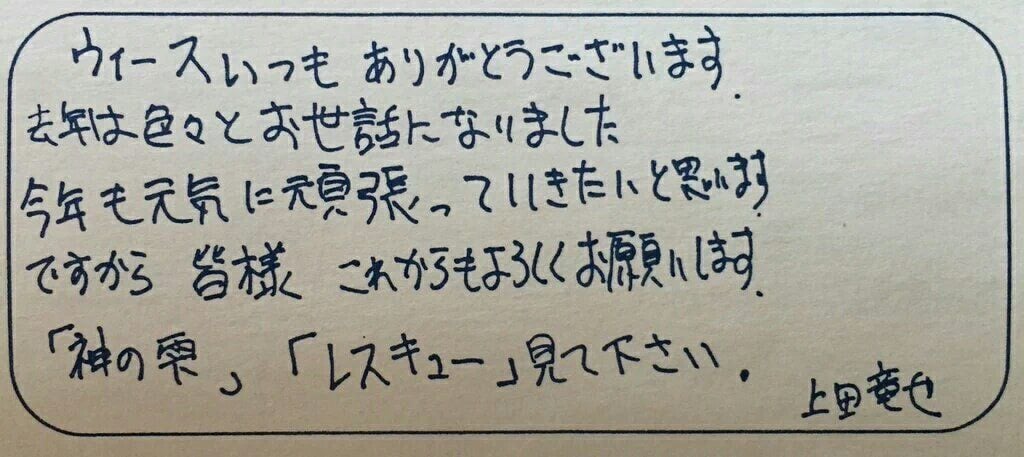 ウィースいつも ありがとうございます.
去年は色々とお世話になりました
今年も元気に頑張っていきたいと思います
ですから 皆様 これからもよろしくお願いします.
「神の雫」、「レスキュー」見て下さい.
上田竜也